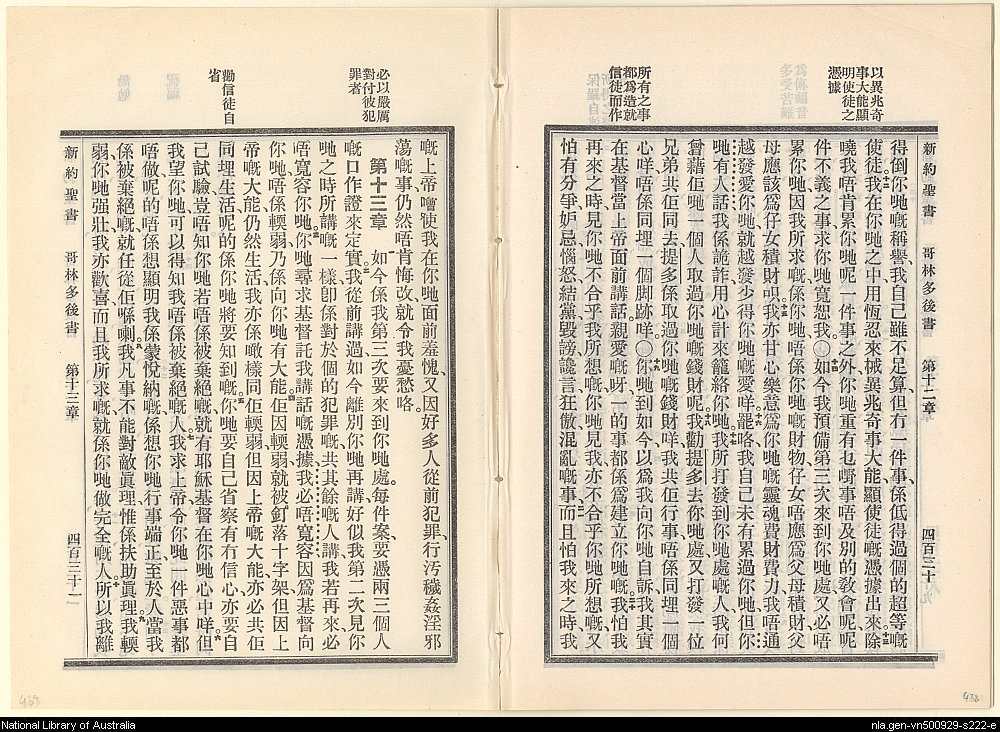 以異兆奇
事大能顯
明使徒之
憑據
所有之事
都爲造就
信徒而作
新約聖書 哥林多後書 第十二章 四百三十
得倒你哋嘅稱譽、我自己雖不足算、但冇一件事、係低得過個的超等嘅
使徒。十二我在你哋之中、用恆忍來械異兆奇事大能、顯使徒嘅憑據出來。十三除
曉我唔肯累你哋呢一件事之外、你哋重有乜嘢事唔及別的敎會呢、呢
件不義之事、求你哋寬恕我。〇十四如今我預備第三次來到你哋處、又必唔
累你哋、因我所求嘅、係你哋、唔係你哋嘅財物、仔女唔應爲父母積財、父
母應該爲仔女積財呮。十五我亦甘心樂意爲你哋嘅靈魂費財費力、我唔通
越發愛你哋、就越發少得你哋嘅愛咩。十六罷咯、我自己未有累過你哋、但你
哋有人話我係詭詐、用心計來籠絡你哋。十七我所打發到你哋處嘅人、我何
曾藉佢哋一個人取過你哋嘅錢財呢。十八我勸提多去你哋處、又打發一位
兄弟共佢同去、提多係取過你哋嘅錢財咩、我共佢行事、唔係同埋一個
心咩、唔係同埋一個脚跡咩。〇十九你哋到如今、以爲我向你哋自訴、我其實
在基督當上帝面前講話、親愛嘅呀、一的事都係爲建立你哋嘅。二十我怕我
再來之時、見你哋不合乎我所想嘅、你哋見我亦不合乎你哋所想嘅、又
怕有分爭妒忌惱怒結黨毀謗讒言狂傲混亂嘅事。二一而且怕我來之時、我
必以嚴厲
對付彼犯
罪者
勸信徒自
省
嘅上帝噲使我在你哋面前羞愧、又因好多人從前犯罪、行汚穢姦淫邪
蕩嘅事、仍然唔肯悔改、就令我憂愁咯。
第十三章 如今係我第三次要來到你哋處。每件案、要憑兩三個人
嘅口作證來定實。二我從前講過、如今離別你哋再講、好似我第二次見你
哋之時所講嘅一樣、卽係對於個的犯罪嘅、共其餘嘅人講、我若再來、必
唔寬容你哋。三你哋尋求基督託我講話嘅憑據、我必唔寬容、因爲基督向
你哋唔係輭弱、乃係向你哋有大能。四佢因輭弱就被釘落十字架、但因上
帝嘅大能、仍然生活、我亦係噉樣同佢輭弱、但因上帝嘅大能、亦必共佢
同埋生活、呢的係你哋將要知到嘅。五你哋要自己省察有冇信心、亦要自
己試驗、豈唔知你哋若唔係被棄絕嘅、就有耶穌基督在你哋心中咩。六但
我望你哋可以得知我唔係被棄絕嘅人。七我求上帝、令你哋一件惡事都
唔做、呢的唔係想顯明我係蒙悅納嘅、係想你哋行事端正、至於人當我
係被棄絕嘅、就任從佢哋喇。八我凡事不能對敵眞理、惟係扶助眞理。九我輭
弱、你哋强壯、我亦歡喜、而且我所求嘅、就係你哋做完全嘅人。十所以我離
新約聖書 哥林多後書 第十三章 四百三十一
438
439
National Library of Australia
nla.gen-vn500929-s222-e